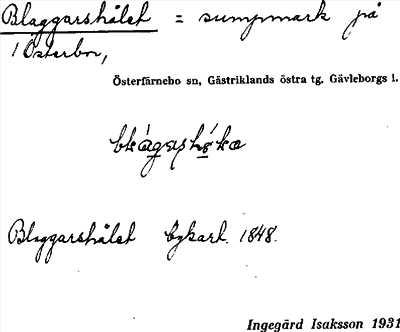 Blaggarshålet = sumpmark på
1 Österbor,
Österfärnebo sn, Gästriklands östra tg. Gävleborgs l.
Blaggarshålet bykart. 1848.
Ingegärd Isaksson 1931